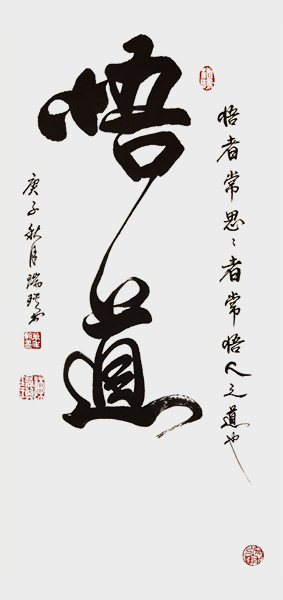 悟道
悟者常思〻者常悟人之道也
庚子秋月瑞琪书